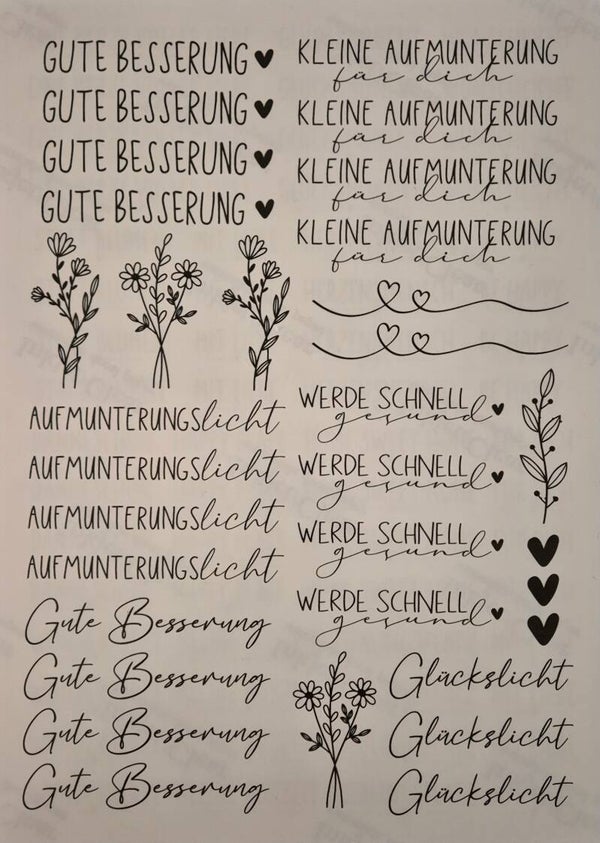 GUTE BESSERUNG
GUTE BESSERUNG
GUTE BESSERUNG
GUTE BESSERUNG
KLEINE AUFMUNTERUNG
für dich
KLEINE AUFMUNTERUNG
für dich
KLEINE AUFMUNTERUNG
für dich
KLEINE AUFMUNTERUNG
für dich
AUFMUNTERUNGSlicht
AUFMUNTERUNGSlicht
AUFMUNTERUNGSlicht
AUFMUNTERUNGSlicht
WERDE SCHNELL
gesund
WERDE SCHNELL
gesund
WERDE SCHNELL
gesund
WERDE SCHNELL
gesund
Gute Besserung
Gute Besserung
Gute Besserung
Gute Besserung
Glückslicht
Glückslicht
Glückslicht